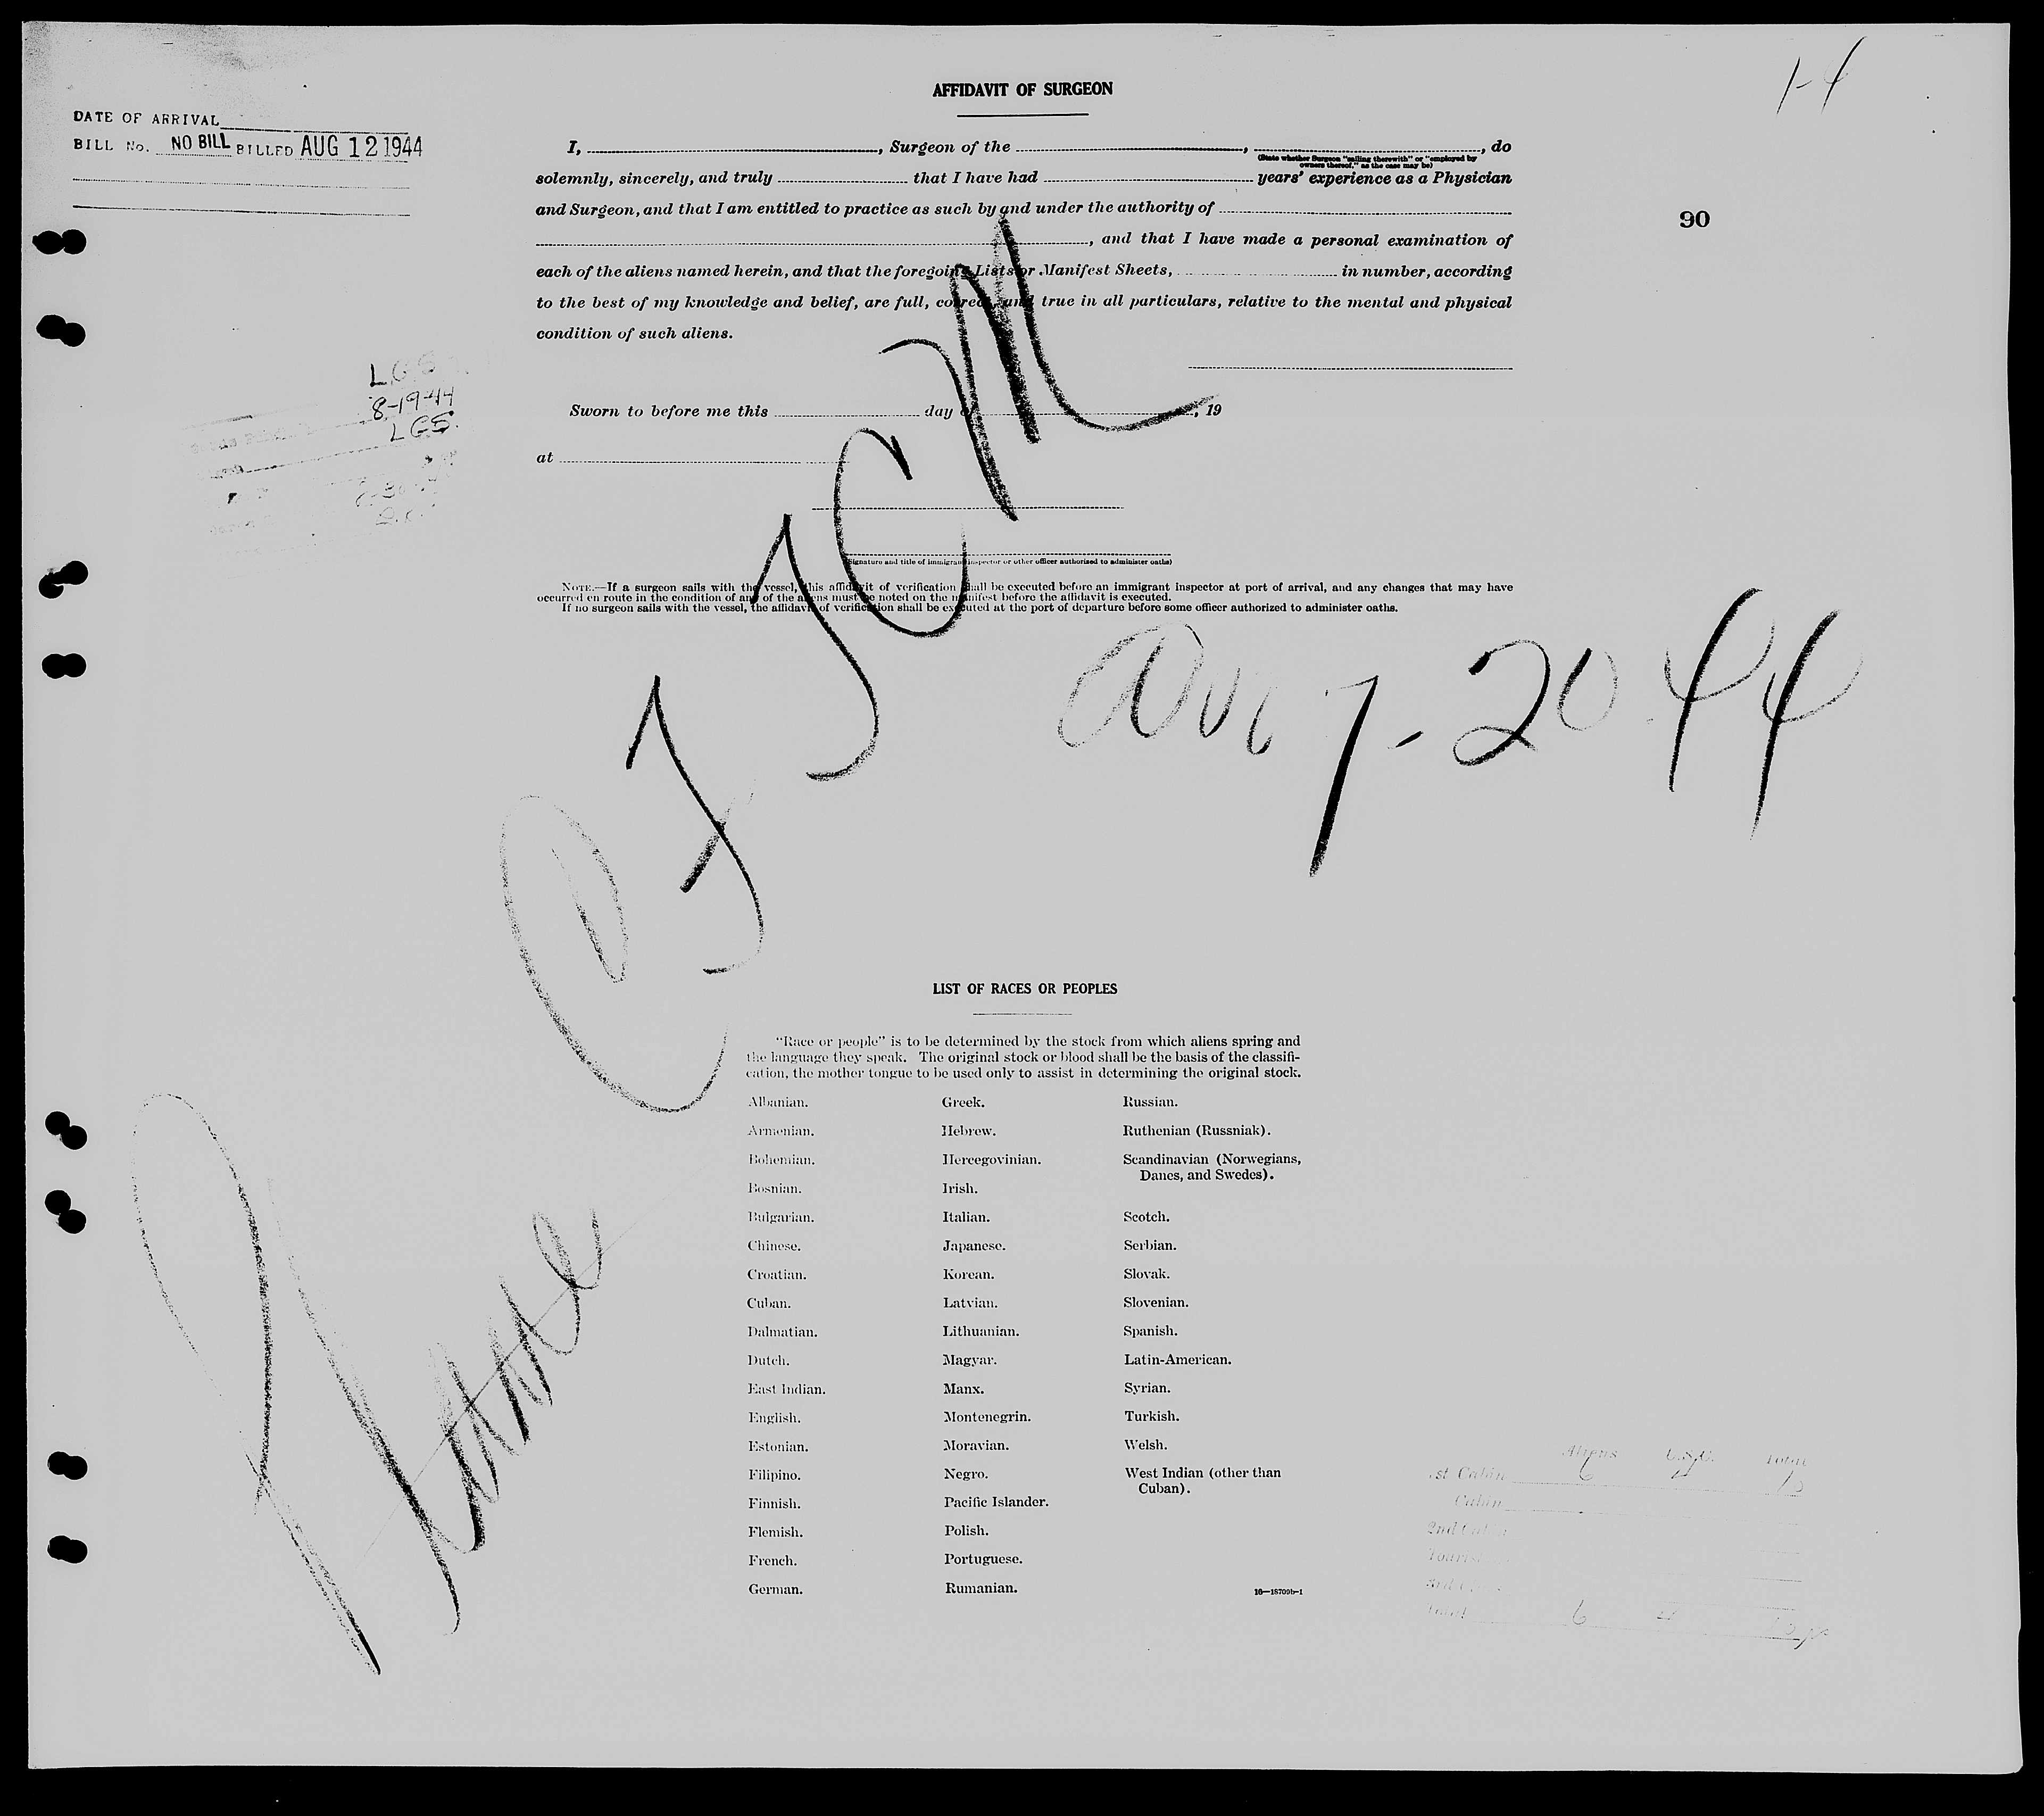 1-4
AFFIDAVIT OF SURGEON
DATE OF ARRIVAL
BILL No. NO BILL BILLED AUG 12 1944
I, , Surgeon of the , , do
(State whether Surgeon "sailing therewith" or "employed by
owners thereof," as the case may be)
solemnly, sincerely, and truly that I have had years' experience as a Physician
and Surgeon, and that I am entitled to practice as such by and under the authority of
90
, and that I have made a personal examination of
each of the aliens named herein, and that the foregoing Lists or Manifest Sheets, in number, according
to the best of my knowledge and belief, are full, correct, and true in all particulars, relative to the mental and physical
condition of such aliens.
LGS
8-19-44
LGS.
Sworn to before me this day of , 19
at
(Signature and title of immigrant inspector or other officer authorized to administer oaths)
NOTE.—If a surgeon sails with the vessel, this affidavit of verification shall be executed before an immigrant inspector at port of arrival, and any changes that may have
occurred en route in the condition of any of the aliens must be noted on the manifest before the affidavit is executed.
If no surgeon sails with the vessel, the affidavit of verification shall be executed at the port of departure before some officer authorized to administer oaths.
Aug 7-20 44
Plane
LIST OF RACES OR PEOPLES
"Race or people" is to be determined by the stock from which aliens spring and
the language they speak. The original stock or blood shall be the basis of the classifi-
cation, the mother tongue to be used only to assist in determining the original stock.
Albanian. Greek. Russian.
Armenian. Hebrew. Ruthenian (Russniak).
Bohemian. Hercegovinian. Scandinavian (Norwegians,
Danes, and Swedes).
Bosnian. Irish.
Bulgarian. Italian. Scotch.
Chinese. Japanese. Serbian.
Croatian. Korean. Slovak.
Cuban. Latvian. Slovenian.
Dalmatian. Lithuanian. Spanish.
Dutch. Magyar. Latin-American.
East Indian. Manx. Syrian.
English. Montenegrin. Turkish.
Estonian. Moravian. Welsh.
Filipino. Negro. West Indian (other than
Cuban).
Finnish. Pacific Islander.
Flemish. Polish.
French. Portuguese.
German. Rumanian.
16—18709b-1
Aliens U.S.C. Total
1st Cabin 6 4 10
Cabin
2nd Cabin
Tourist
Total 6 4 10